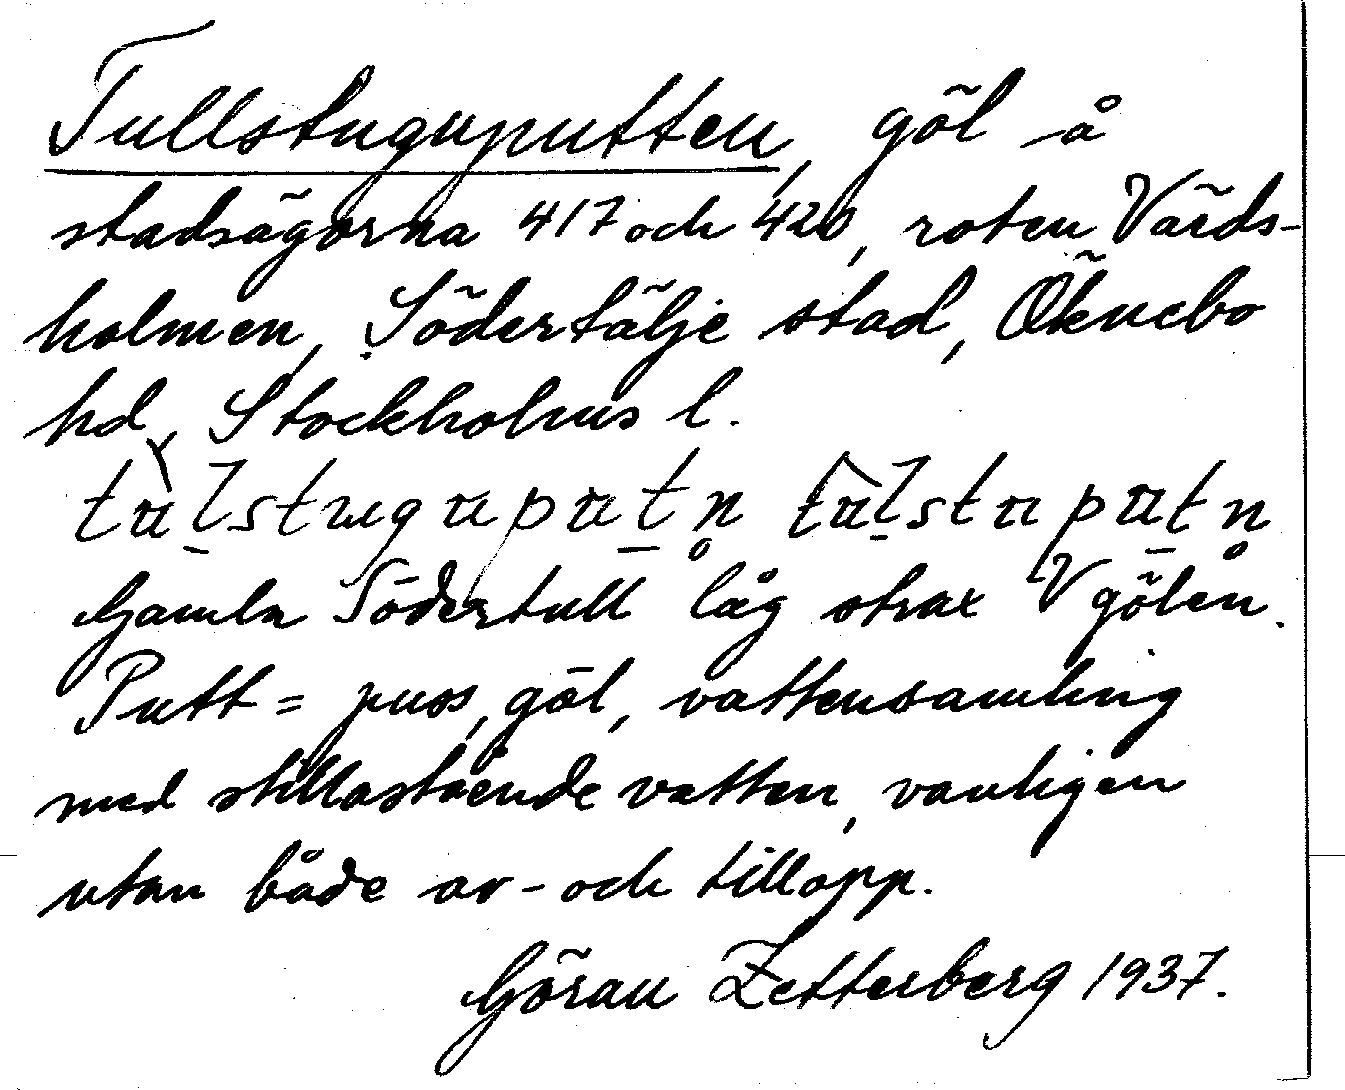 Tullstuguputten, göl å
stadsägorna 417 och 420, roten Värds-
holmen, Södertälje stad, Öknebo
hd, Stockholms l.
Gamla Södertull låg strax V gölen.
Putt = puss, göl, vattensamling
med stillastående vatten, vanligen
utan både av- och tillopp.
Göran Zetterberg 1937.